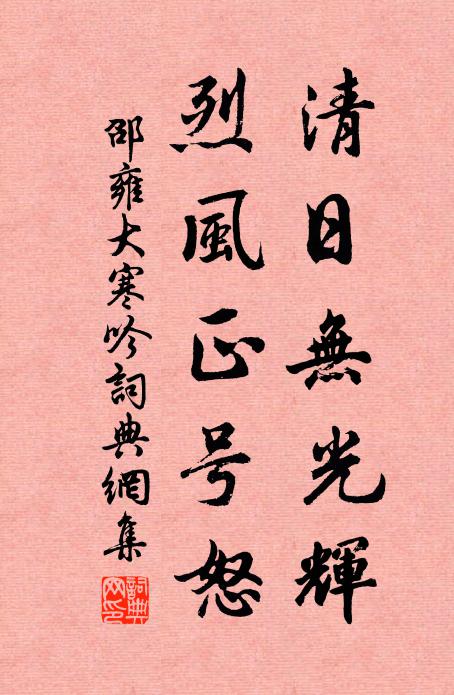 清日無光輝
烈風正号怒
邵雍大寒吟詞典網集
詞典網印